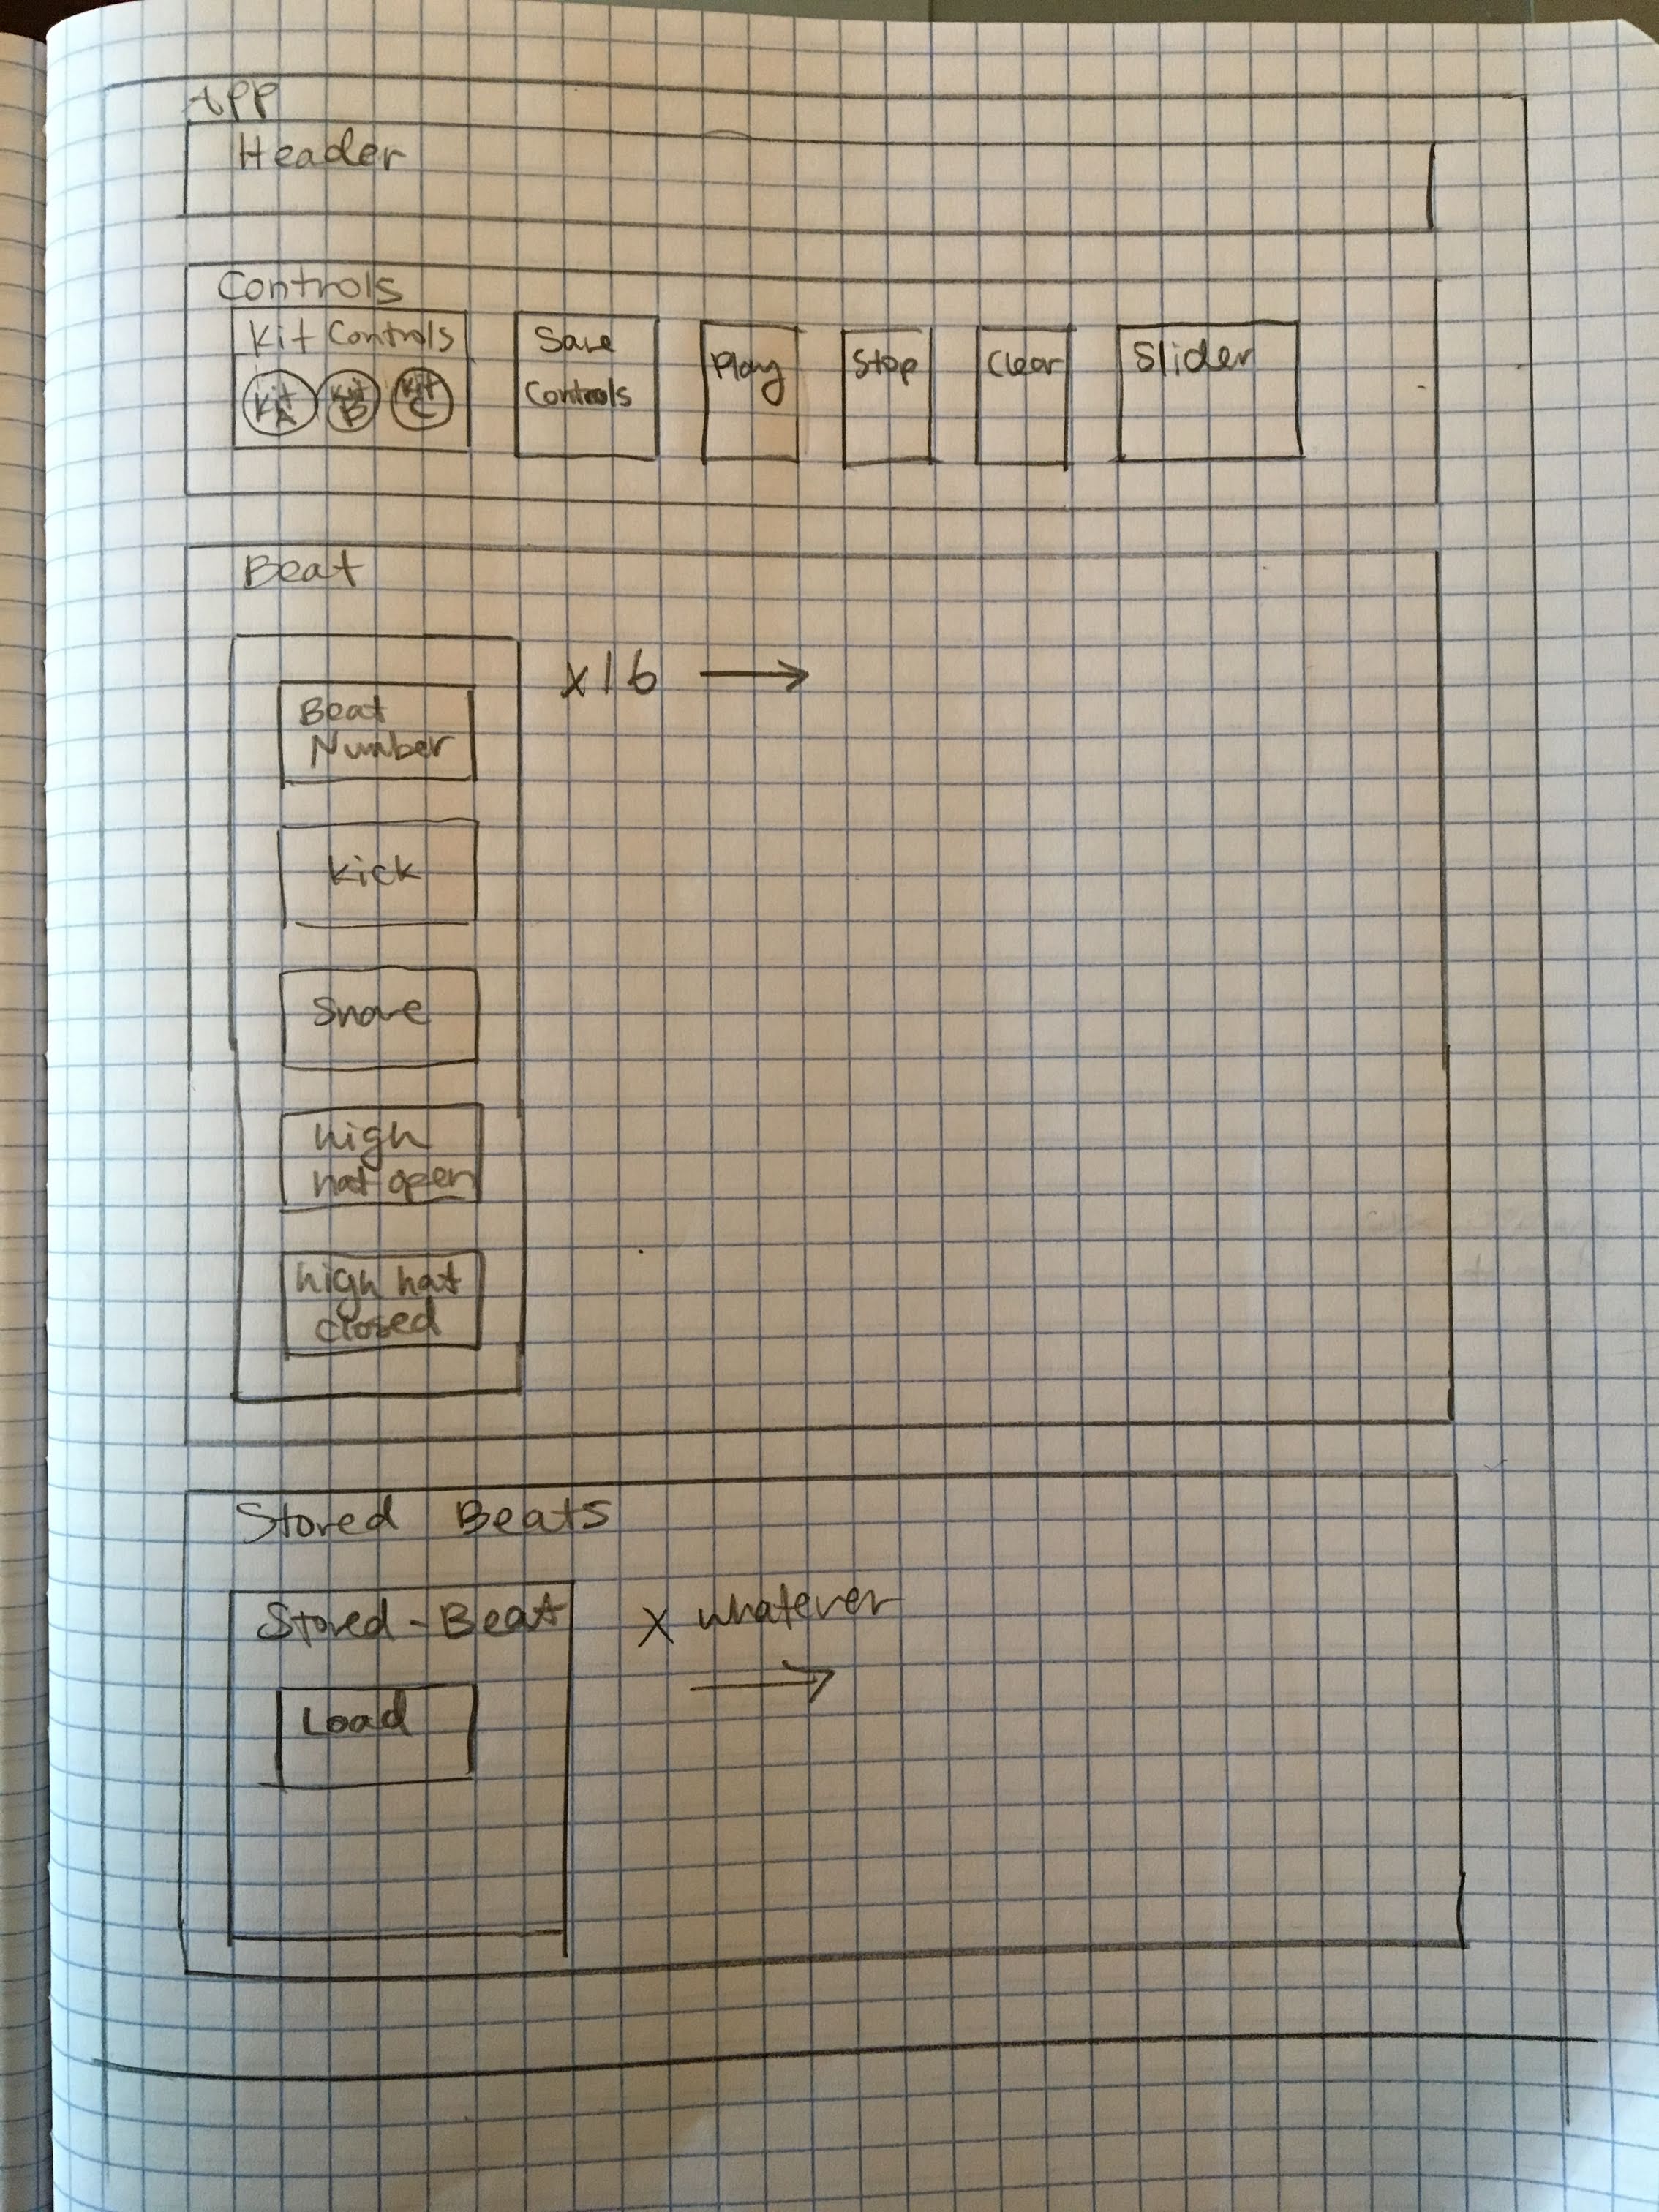 App
Header
Controls
Kit Controls
Kit A
Kit B
Kit C
Save
Controls
Play
Stop
Clear
Slider
Beat
x16 →
Beat
Number
Kick
Snare
high
hat open
high hat
closed
Stored Beats
Stored-Beat
x whatever
→
Load